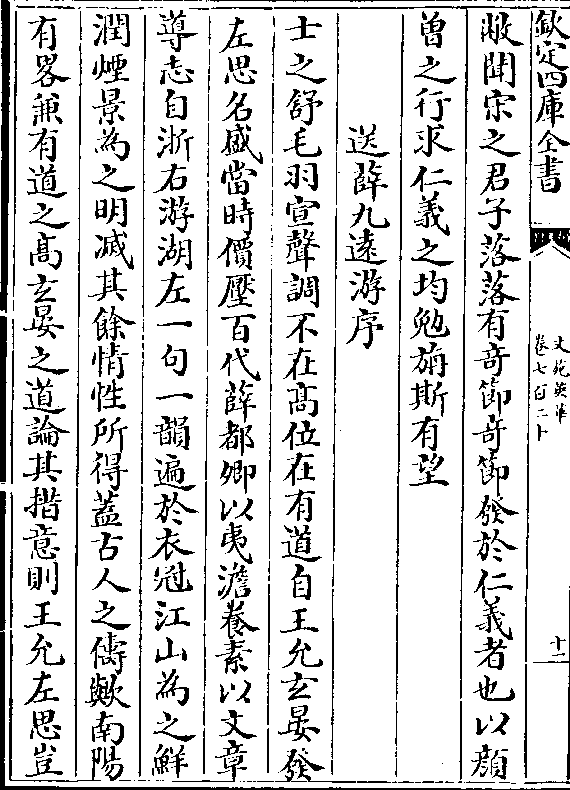 欽定四庫全書
文苑英華
卷七百二十
十二
敝聞宋之君子落落有竒節竒節發於仁義者也以顔
曽之行求仁義之均勉旃斯有望
送薛九遠游序
士之舒毛羽宣聲調不在髙位在有道自王允玄晏發
左思名盛當時價壓百代薛都卿以夷澹養素以文章
導志自浙右游湖左一句一韻遍於衣冠江山為之鮮
潤煙景為之明滅其餘情性所得蓋古人之儔歟南陽
有畧兼有道之髙玄晏之道論其措意則王允左思豈